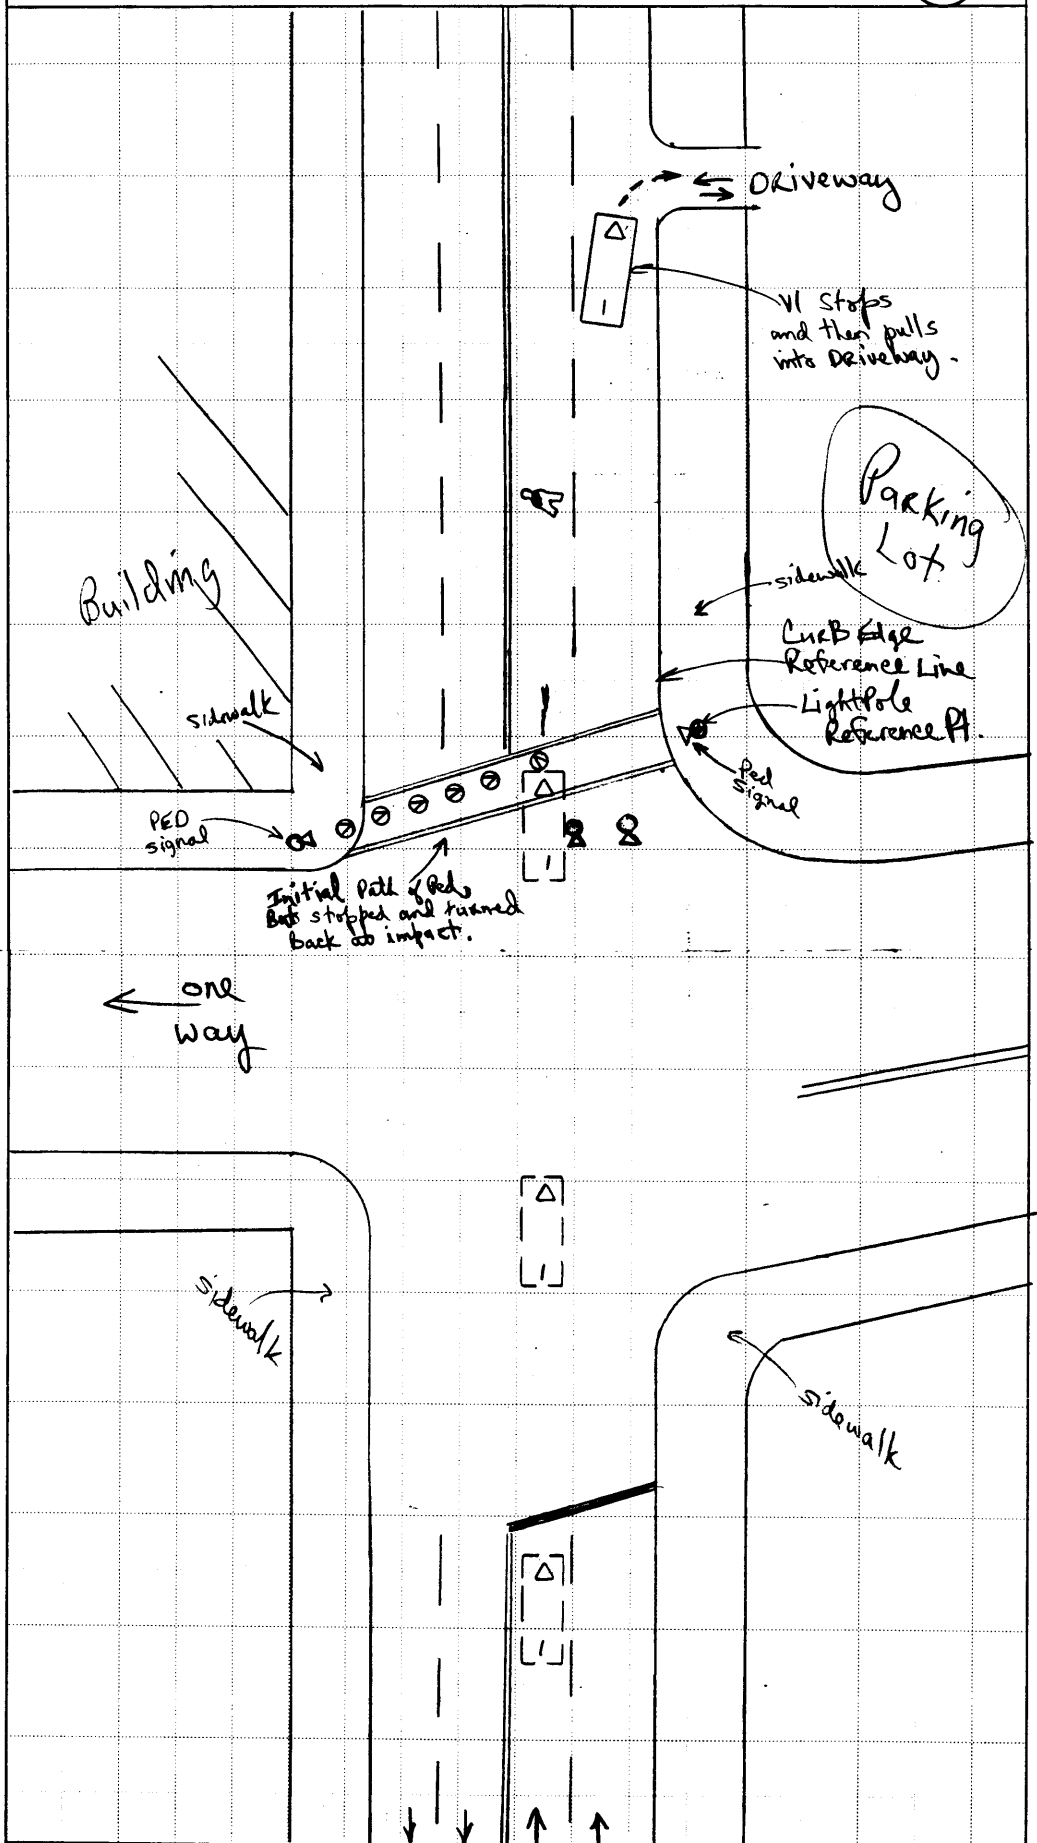 DRiveway
V1 Stops
and then pulls
into DRiveway.
Parking
Lot
Building
sidewalk
CurB Edge
Reference Line
LightPole
Reference Pt.
sidewalk
Ped
signal
PED
signal
Initial Path of Ped,
But stopped and turned
Back at impact.
one
way
sidewalk
sidewalk
1
1
1
1